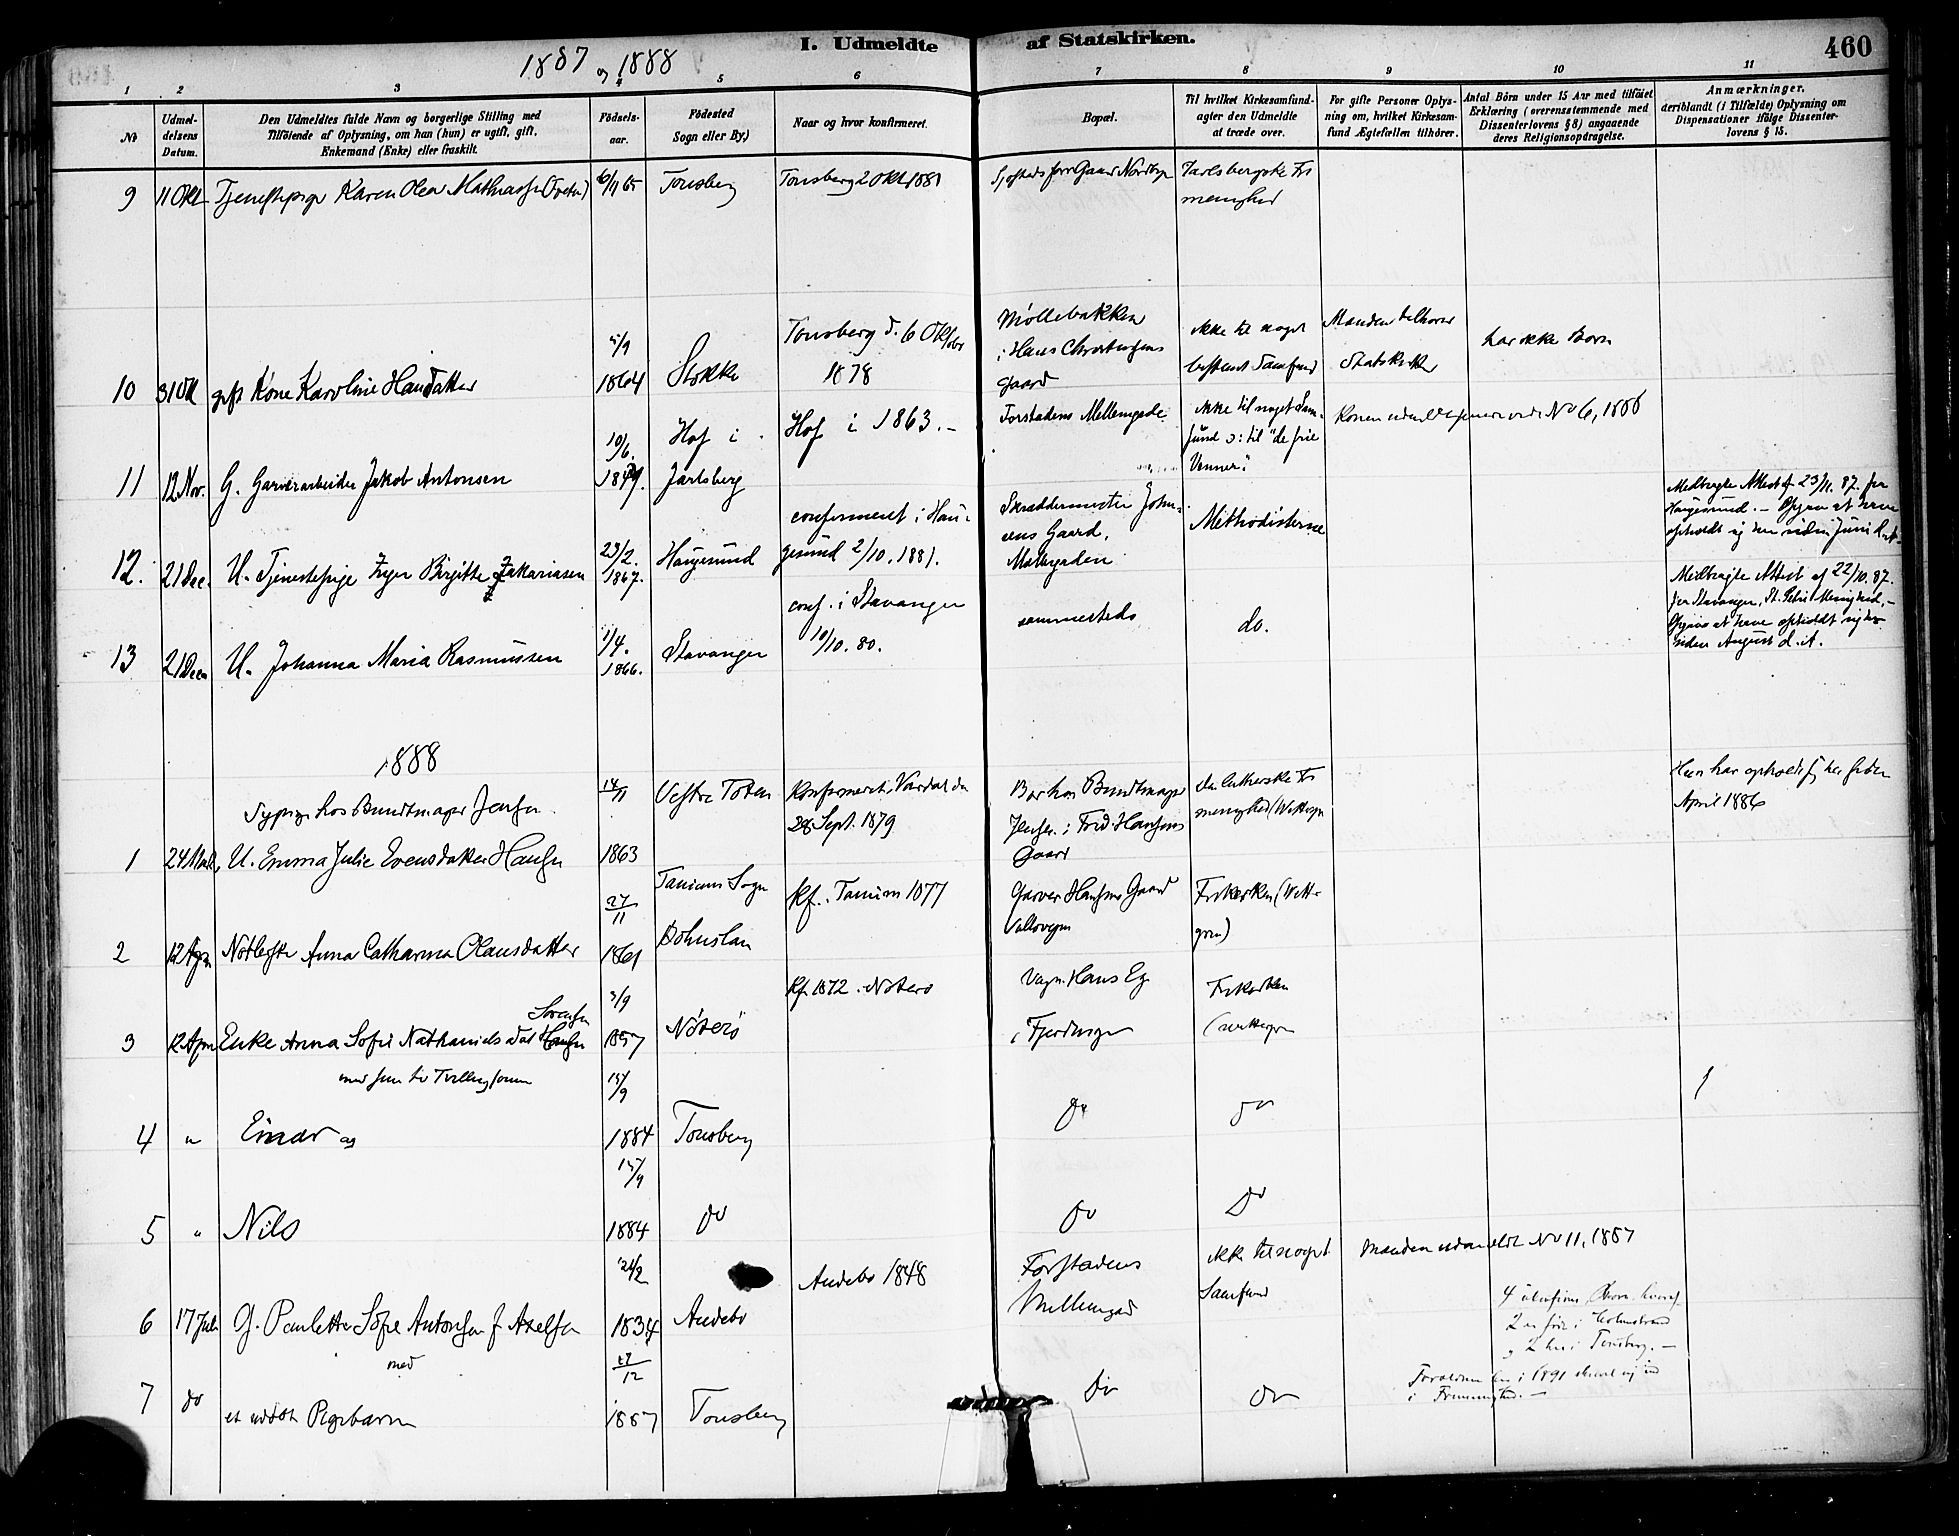 1887 og 1888
I. Udmeldte af Statskirken.
460
1 2 3 4 5 6 7 8 9 10 11
No
Udmel-
delsens
Datum.
Den Udmeldtes fulde Navn og borgerlige Stilling med
Tilföiende af Oplysning, om han (hun) er ugift, gift,
Enkemand (Enke) eller fraskilt.
Födsels-
aar.
Födested
Sogn eller By)
Naar og hvor konfirmeret.
Bopæl.
Til hvilket Kirkesamfund-
agter den Udmeldte
at træde over.
For gifte Personer Oplys-
ning om, hvilket Kirkesam-
fund Ægtefællen tilhörer.
Antal Börn under 15 Aar med tilföiet
Erklæring (overensstemmende med
Dissenterlovens § 8) angaaende
deres Religionsopdragelse.
Anmærkninger,
deriblandt (i Tilfælde) Oplysning om
Dispensationer ifölge Dissenter-
lovens § 15.
9 11 Okt Tjenestepige Karen Olea 6/11 65 Tonsberg Tonsberg 2 Okt 1881
Gaard Nordbye
Jarlsbergske Fri
menighed
10 31 Okt gift Kone Karoline Hansdatter
1864 Stokke
Tonsberg d. 6 Oktobr
1878
Møllebakken
i Hans Christensens
Gaard
ikke til noget
bestemt Samfund
Manden tilhører
Statskirken
har ikke Børn
11 12 Nov. G. Garverarbeider Jakob Antonsen
10/6.
1849.
Hof i
Jarlsberg
Hof i 1863. –
Forstadens Mellemgade.
ikke til noget Sam-
fund o: til "de frie
Venner".
Konen udmeldt senere vide No 6, 1888
12. 21 Dec. U. Tjenestepige Inger Birgitte Zakariasen
23/2.
1867.
Haugesund
confirmeret i Hau-
gesund 2/10. 1881.
Skræddermester John-
sens Gaard,
Møllegaden
Methodisterne
Medbragte Attest af 23/11. 87. fra
Haugesund. –
opholdt sig her siden Juni
13 21 Decr U. Johanna Maria Rasmussen
1/4.
1866.
Stavanger
conf. i Stavanger
10/10. 80.
sammesteds
do.
Medbragte Attest af 22/10. 87.
fra Stavanger, St. Petri Menighed, –
Opgives at have opholdt sig her
siden August d. A.
1888
Sypige hos Bundtmager Jensen
1 24 U. Emma Julie Evensdatter Hansen
14/11
1863
Vestre Toten
Konfirmeret i Vardal den
28 Sept. 1879
Bor hos Bundtmager
Jensen i Fred. Hansens
Gaard
Den lutherske Fri
menighed (Wettergren
Hun har opholdt sig her siden
April 1886
2 12 Apr Anna Catharina Olausdatter
27/11
1861
Tanum Sogn
Bohuslan
Kf. i Tanum 1877
Garver Hansens Gaard
Valløveien
Frikirken (Wetter-
gren)
3 12 Apr Enke Anna Sofie Nathanielsdat Hansen
Sorensen
med sine to Tvillingsønner
3/9
1857
Nøterø
Kf. 1872 i Nøterø
Vagn. Hans Eg
i Fjerdingen
Frikirken
(Wettergren
4 " Einar og
15/9
1884 Tonsberg
do do
5 " Nils
15/9
1884 do
do do
6 17 Juli G. Paulette Sofie Antonsen f. Axelsen
med
24/2
1834
Andebo
Andebo 1848
Forstadens
Mellemgad
ikke til noget
Samfund
Manden udmeldt No 11, 1887
4
2 er født i Holmestrand
og 2 her i Tønsberg. –
7 do et udøbt Pigebarn
27/12
1887 Tonsberg
do do
Forældrene i 1891
i Frimenighed. –